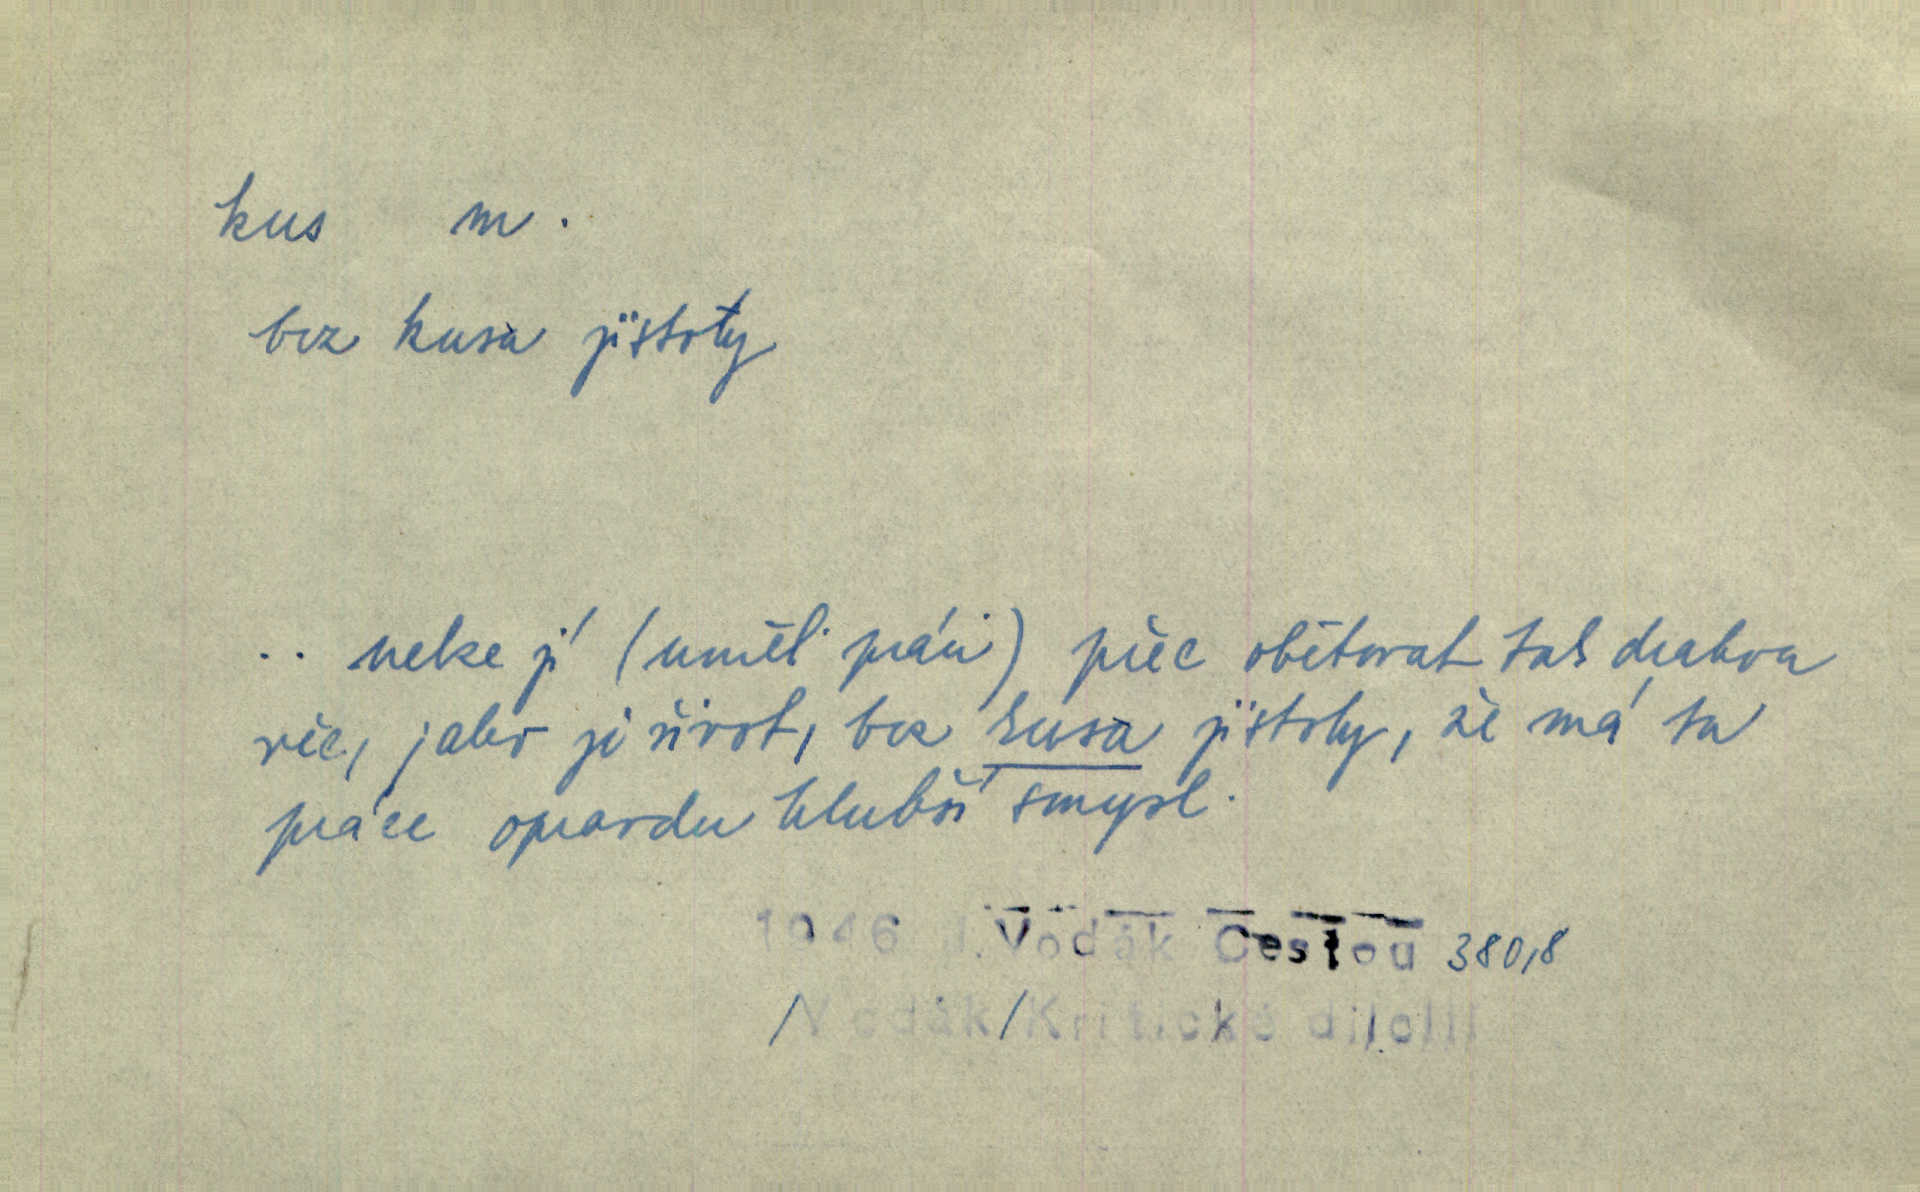 kus m.
bez kusa jistoty
.. nelze jí (uměl. práci) přec obětovat tak drahou
věc, jako je život, bez kusa jistoty, že má ta
práce opravdu hlubší smysl.
1946 J.Vodák Cestou 380,8
/Vodák/Kritické dílo III